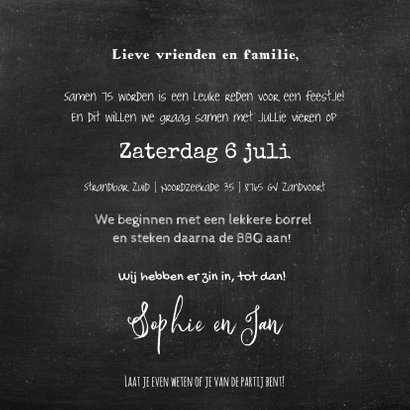 Lieve vrienden en familie,
Samen 75 worden is een leuke reden voor een feestje!
En dit willen we graag samen met jullie vieren op
Zaterdag 6 juli
Strandbar Zuid | Noordzeekade 35 | 8765 GV Zandvoort
We beginnen met een lekkere borrel
en steken daarna de BBQ aan!
Wij hebben er zin in, tot dan!
Sophie en Jan
Laat je even weten of je van de partij bent!